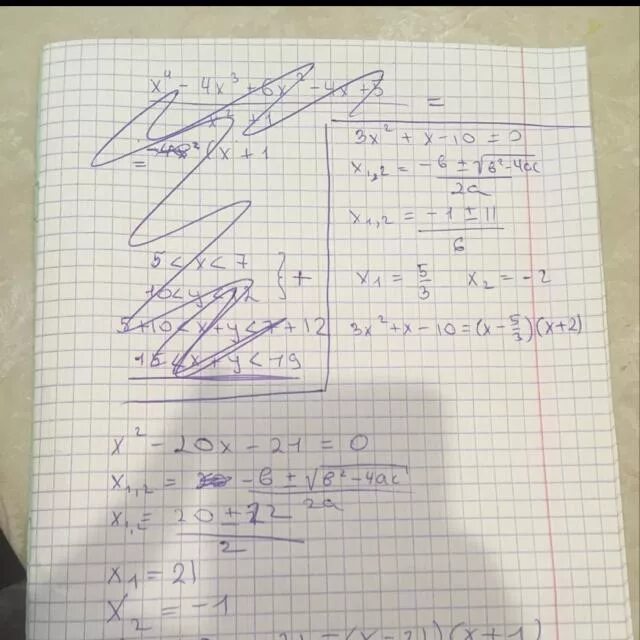 x⁴ - 4x³ + 6x² - 4x + 5 =
5 < x < 7
10 < y < 12 } +
5 + 10 < x + y < 7 + 12
15 < x + y < 19
3x² + x - 10 = 0
x₁,₂ = (-в ± √(в² - 4ac))/2a
x₁,₂ = (-1 ± 11)/6
x₁ = 5/3 x₂ = -2
3x² + x - 10 = (x - 5/3)(x + 2)
x² - 20x - 21 = 0
x₁,₂ = (-в ± √(в² - 4ac))/2a
x₁,₂ = (20 ± 22)/2
x₁ = 21
x₂ = -1